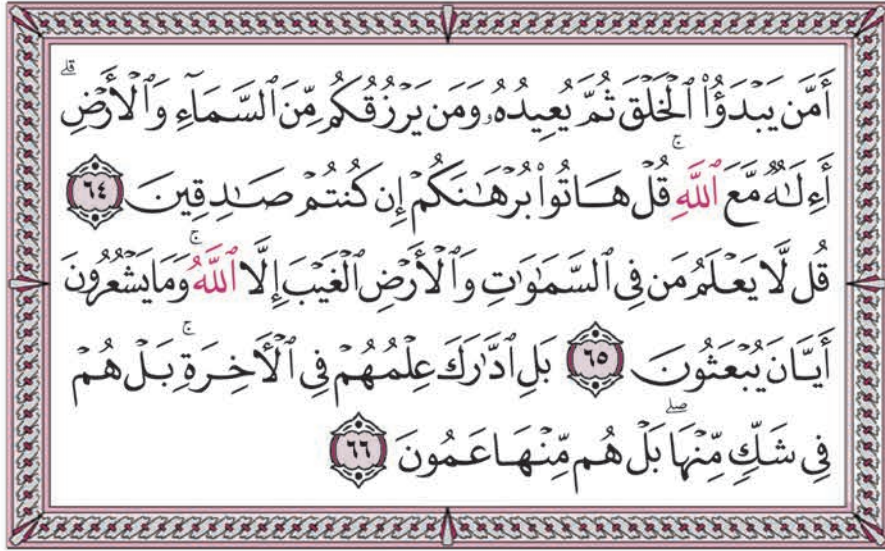 أَمَّن يَبۡدَؤُاْ ٱلۡخَلۡقَ ثُمَّ يُعِيدُهُۥ وَمَن يَرۡزُقُكُم مِّنَ ٱلسَّمَآءِ وَٱلۡأَرۡضِۗ
أَءِلَٰهٞ مَّعَ ٱللَّهِۚ قُلۡ هَاتُواْ بُرۡهَٰنَكُمۡ إِن كُنتُمۡ صَٰدِقِينَ ٦٤
قُل لَّا يَعۡلَمُ مَن فِي ٱلسَّمَٰوَٰتِ وَٱلۡأَرۡضِ ٱلۡغَيۡبَ إِلَّا ٱللَّهُۚ وَمَا يَشۡعُرُونَ
أَيَّانَ يُبۡعَثُونَ ٦٥ بَلِ ٱدَّٰرَكَ عِلۡمُهُمۡ فِي ٱلۡأٓخِرَةِۚ بَلۡ هُمۡ
فِي شَكّٖ مِّنۡهَاۖ بَلۡ هُم مِّنۡهَا عَمُونَ ٦٦